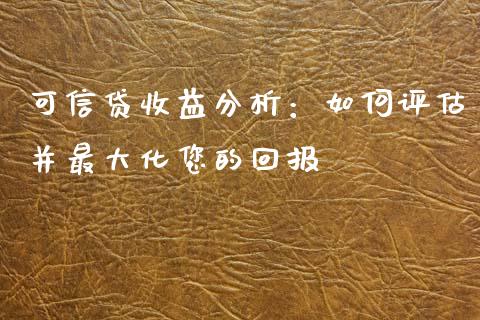 可信贷收益分析：如何评估
并最大化您的回报